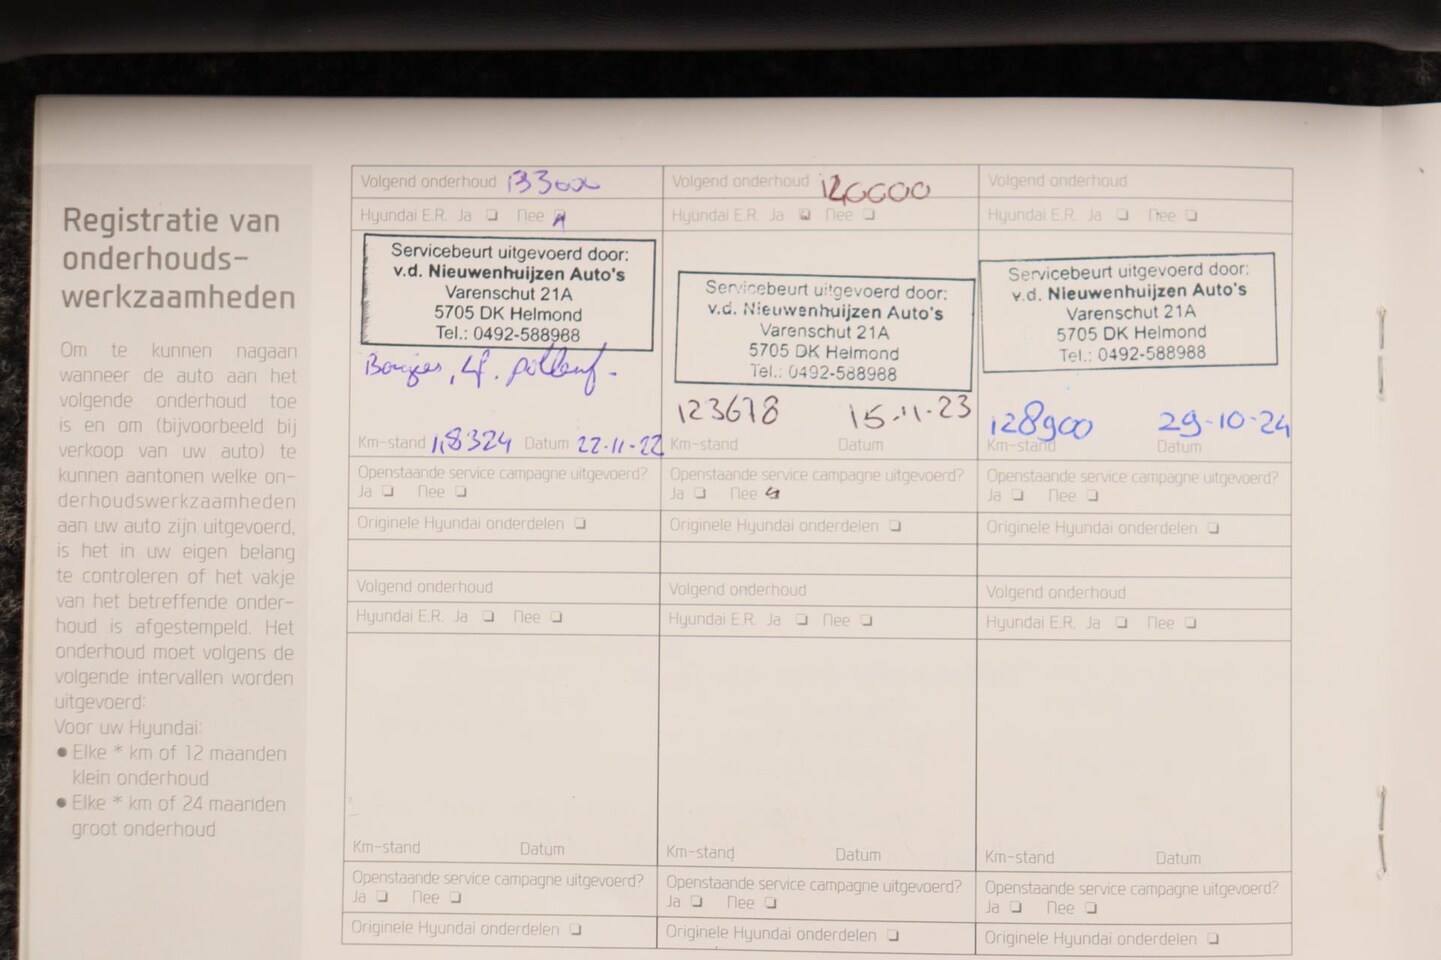 Registratie van
onderhouds-
werkzaamheden
Om te kunnen nagaan
wanneer de auto aan het
volgende onderhoud toe
is en om (bijvoorbeeld bij
verkoop van uw auto) te
kunnen aantonen welke on-
derhoudswerkzaamheden
aan uw auto zijn uitgevoerd,
is het in uw eigen belang
te controleren of het vakje
van het betreffende onder-
houd is afgestempeld. Het
onderhoud moet volgens de
volgende intervallen worden
uitgevoerd:
Voor uw Hyundai:
• Elke * km of 12 maanden
klein onderhoud
• Elke * km of 24 maanden
groot onderhoud
Volgend onderhoud 133000
Hyundai E.R. Ja Nee
Servicebeurt uitgevoerd door:
v.d. Nieuwenhuijzen Auto's
Varenschut 21A
5705 DK Helmond
Tel.: 0492-588988
Km-stand 118324 Datum 22-11-22
Openstaande service campagne uitgevoerd?
Ja Nee
Originele Hyundai onderdelen
Volgend onderhoud
Hyundai E.R. Ja Nee
Servicebeurt uitgevoerd door:
v.d. Nieuwenhuijzen Auto's
Varenschut 21A
5705 DK Helmond
Tel.: 0492-588988
123678 15-11-23
Km-stand Datum
Openstaande service campagne uitgevoerd?
Ja Nee
Originele Hyundai onderdelen
Volgend onderhoud
Hyundai E.R. Ja Nee
Servicebeurt uitgevoerd door:
v.d. Nieuwenhuijzen Auto's
Varenschut 21A
5705 DK Helmond
Tel.: 0492-588988
128900 29-10-24
Km-stand Datum
Openstaande service campagne uitgevoerd?
Ja Nee
Originele Hyundai onderdelen
Volgend onderhoud
Hyundai E.R. Ja Nee
Km-stand Datum
Openstaande service campagne uitgevoerd?
Ja Nee
Originele Hyundai onderdelen
Volgend onderhoud
Hyundai E.R. Ja Nee
Km-stand Datum
Openstaande service campagne uitgevoerd?
Ja Nee
Originele Hyundai onderdelen
Volgend onderhoud
Hyundai E.R. Ja Nee
Km-stand Datum
Openstaande service campagne uitgevoerd?
Ja Nee
Originele Hyundai onderdelen